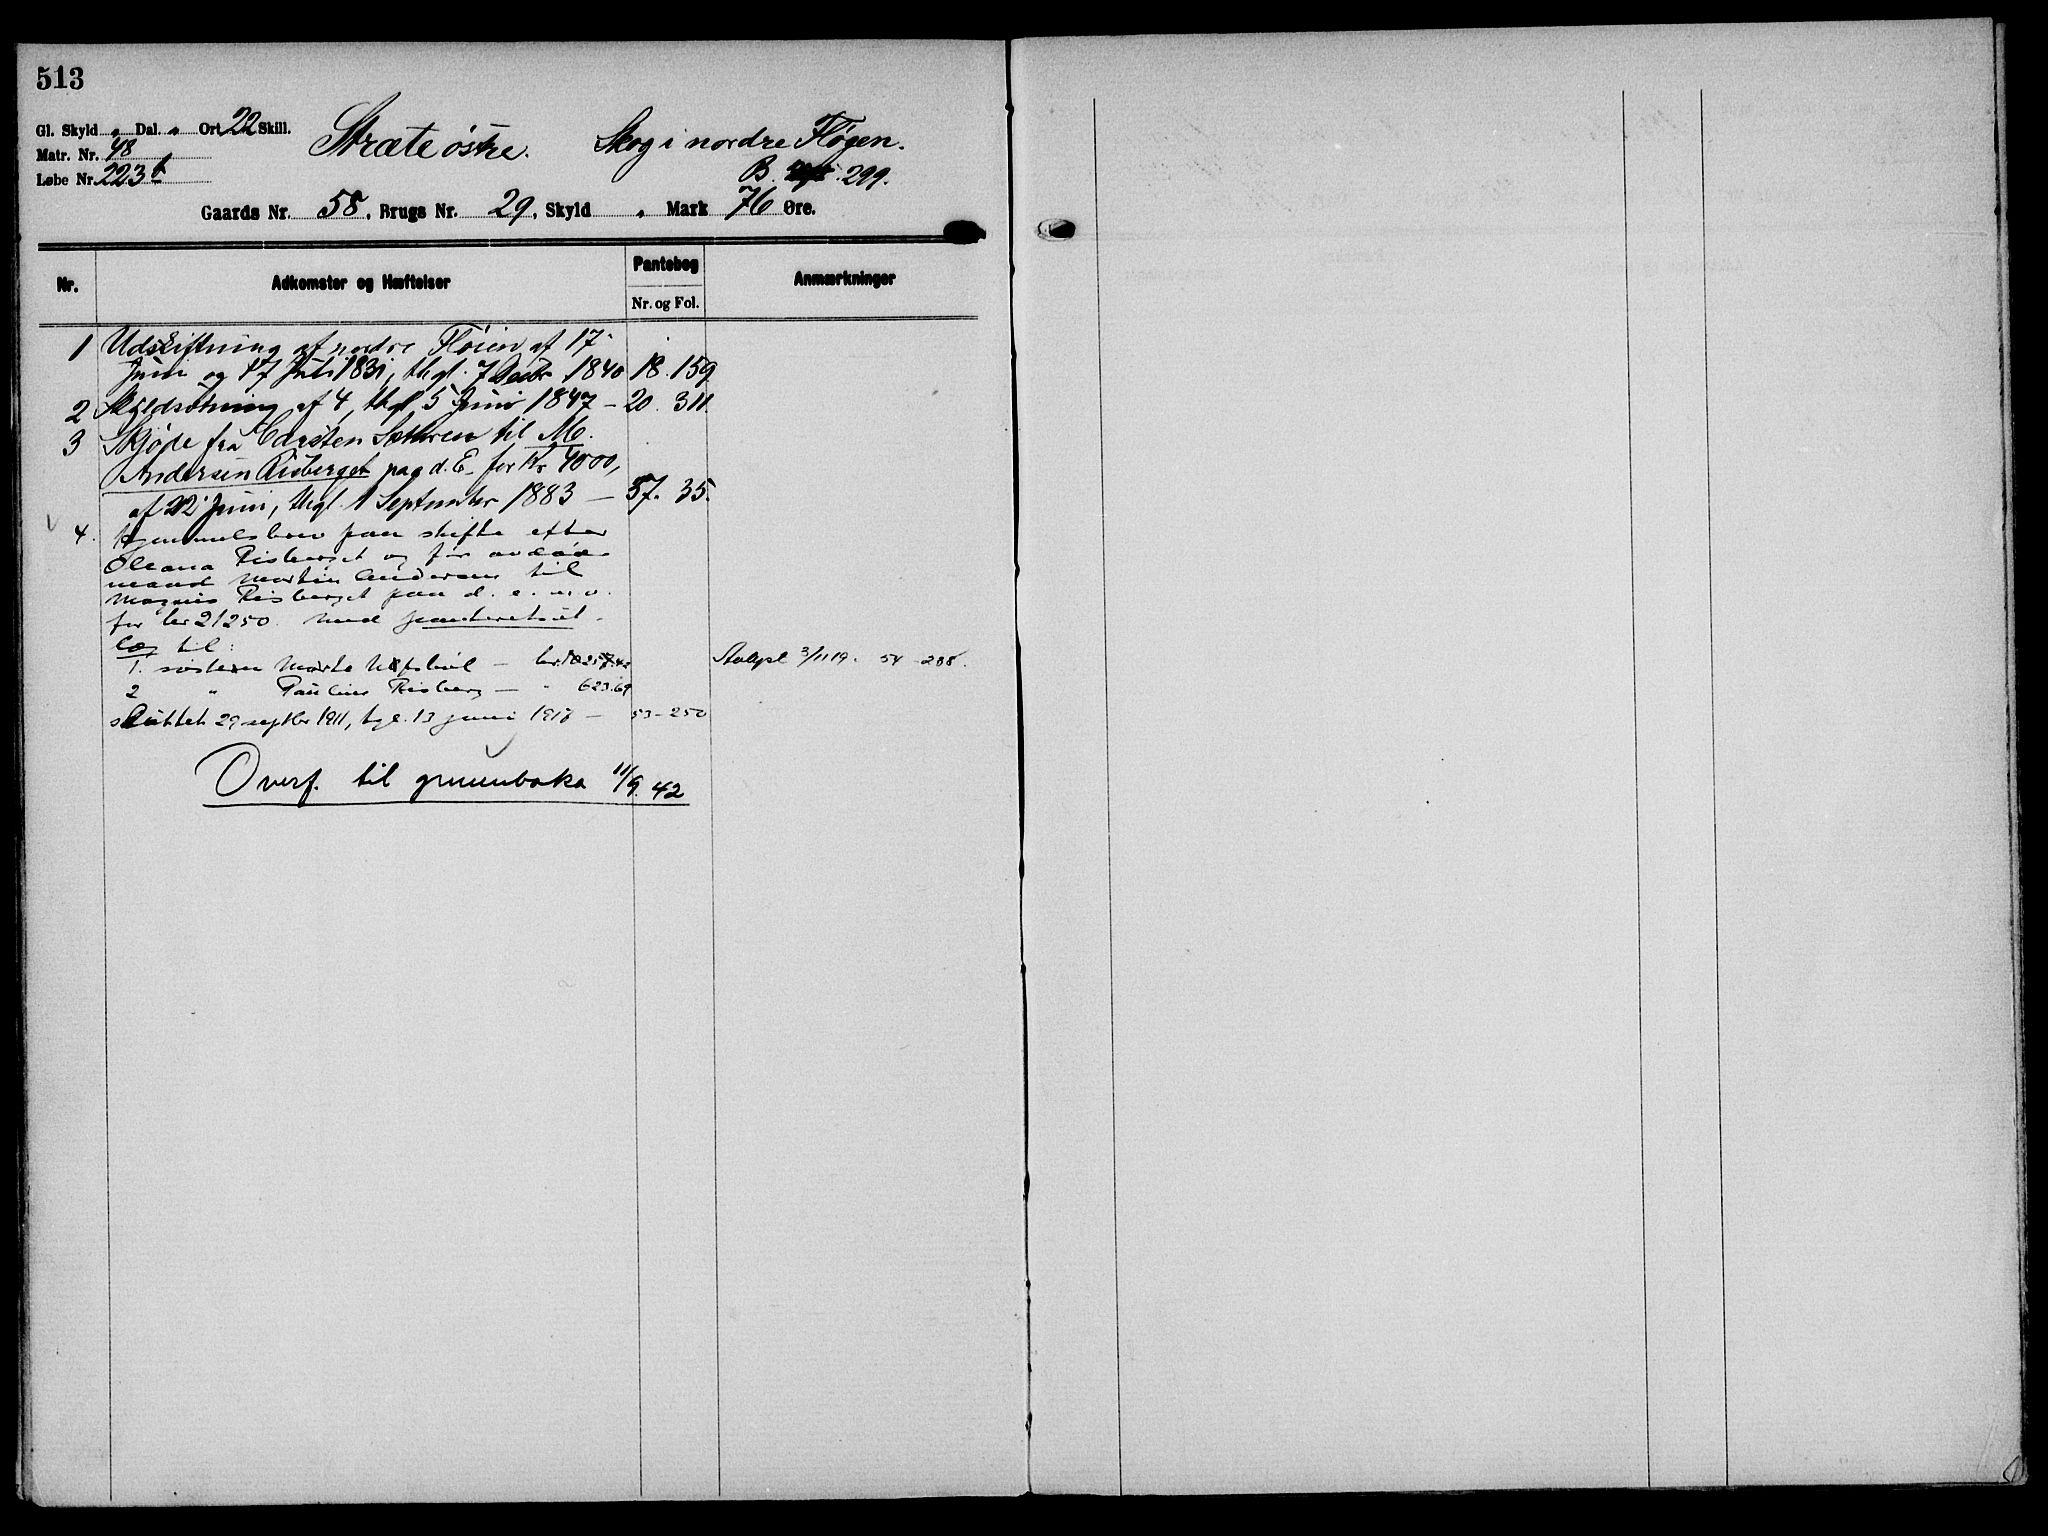 513
Gl. Skyld " Dal. " Ort 22 Skill.
Matr. Nr. 48
Løbe Nr. 223b
Stræte østre. Skog i nordre Fløgen.
B. 299.
Gaards Nr. 58, Brugs Nr. 29, Skyld " Mark 76 Øre.
Nr. Adkomster og Hæftelser Pantebog Anmærkninger
Nr. og Fol.
1 Udskiftning af nordre Fløien af 17
Juni og 17 Juli 1831, thgl. 7 Decbr 1840 18. 159
2 Skyldsætning af 4, thgl 5 Juni 1847 – 20. 311.
3 Skjøde fra Carsten Sæthren til M.
Andersen Risberget paa d. E. for Kr 4000,
af 22 Juni, thgl. 1 September 1883 – 37. 35.
4. Hjemmelsbrev paa skifte efter
Oleana Risberget og før avdøde
mand Martin Andersen til
Magnus Risberget paa d. e. m. v.
for kr 21250 med panteret
til:
1. søsteren Marte – kr. 10257.42 Avlyst 3/11 19. 54 – 288.
2 " Pauline Risberg – " 623.69
sluttet 29 septbr 1911, tgl. 13 juni 1918 – 53–250
Overf. til grunnboka 11/9. 42